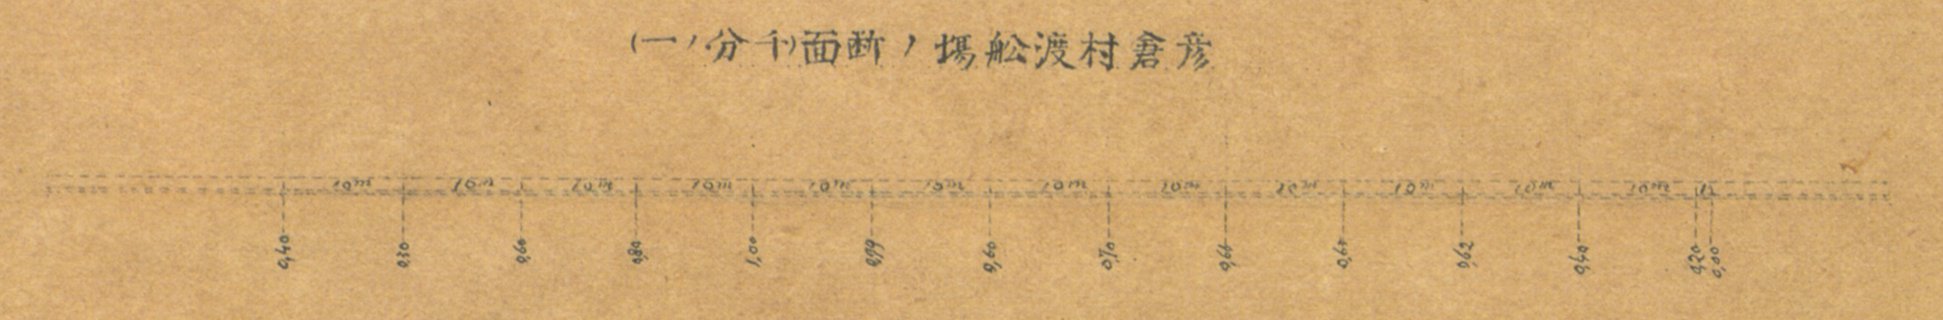 彦倉村渡舩塲ノ断面(千分ノ一)
10m 10m 10m 10m 10m 10m 10m 10m 10m 10m 10m 10m
0,40 0,30 0,60 0,80 1,00 0,99 0,60 0,70 0,66 0,60 0,62 0,40 0,20 0,00